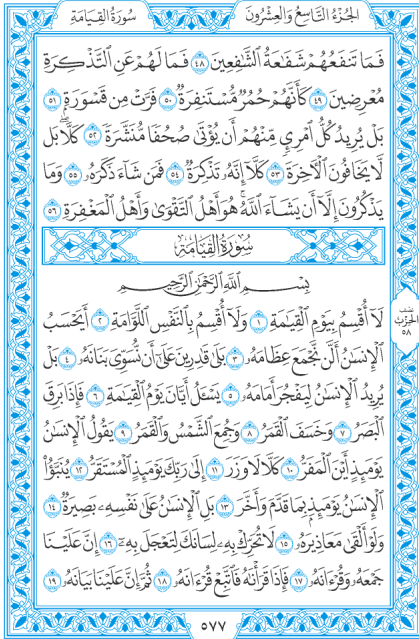 سُورَةُ القِيَامَةِ
الجُزْءُ التَّاسِعُ وَالعِشْرُونَ
فَمَا تَنفَعُهُمْ شَفَٰعَةُ ٱلشَّٰفِعِينَ ٤٨ فَمَا لَهُمْ عَنِ ٱلتَّذْكِرَةِ
مُعْرِضِينَ ٤٩ كَأَنَّهُمْ حُمُرٌ مُّسْتَنفِرَةٌ ٥٠ فَرَّتْ مِن قَسْوَرَةٍۭ ٥١
بَلْ يُرِيدُ كُلُّ ٱمْرِئٍ مِّنْهُمْ أَن يُؤْتَىٰ صُحُفًا مُّنَشَّرَةً ٥٢ كَلَّاۖ بَل
لَّا يَخَافُونَ ٱلْأٓخِرَةَ ٥٣ كَلَّآ إِنَّهُۥ تَذْكِرَةٌ ٥٤ فَمَن شَآءَ ذَكَرَهُۥ ٥٥ وَمَا
يَذْكُرُونَ إِلَّآ أَن يَشَآءَ ٱللَّهُۚ هُوَ أَهْلُ ٱلتَّقْوَىٰ وَأَهْلُ ٱلْمَغْفِرَةِ ٥٦
سُورَةُ القِيَامَةِ
بِسْمِ ٱللَّهِ ٱلرَّحْمَٰنِ ٱلرَّحِيمِ
لَآ أُقْسِمُ بِيَوْمِ ٱلْقِيَٰمَةِ ١ وَلَآ أُقْسِمُ بِٱلنَّفْسِ ٱللَّوَّامَةِ ٢ أَيَحْسَبُ
ٱلْإِنسَٰنُ أَلَّن نَّجْمَعَ عِظَامَهُۥ ٣ بَلَىٰ قَٰدِرِينَ عَلَىٰٓ أَن نُّسَوِّيَ بَنَانَهُۥ ٤ بَلْ
يُرِيدُ ٱلْإِنسَٰنُ لِيَفْجُرَ أَمَامَهُۥ ٥ يَسْـَٔلُ أَيَّانَ يَوْمُ ٱلْقِيَٰمَةِ ٦ فَإِذَا بَرِقَ
ٱلْبَصَرُ ٧ وَخَسَفَ ٱلْقَمَرُ ٨ وَجُمِعَ ٱلشَّمْسُ وَٱلْقَمَرُ ٩ يَقُولُ ٱلْإِنسَٰنُ
يَوْمَئِذٍ أَيْنَ ٱلْمَفَرُّ ١٠ كَلَّا لَا وَزَرَ ١١ إِلَىٰ رَبِّكَ يَوْمَئِذٍ ٱلْمُسْتَقَرُّ ١٢ يُنَبَّؤُا۟
ٱلْإِنسَٰنُ يَوْمَئِذٍۭ بِمَا قَدَّمَ وَأَخَّرَ ١٣ بَلِ ٱلْإِنسَٰنُ عَلَىٰ نَفْسِهِۦ بَصِيرَةٌ ١٤
وَلَوْ أَلْقَىٰ مَعَاذِيرَهُۥ ١٥ لَا تُحَرِّكْ بِهِۦ لِسَانَكَ لِتَعْجَلَ بِهِۦٓ ١٦ إِنَّ عَلَيْنَا
جَمْعَهُۥ وَقُرْءَانَهُۥ ١٧ فَإِذَا قَرَأْنَٰهُ فَٱتَّبِعْ قُرْءَانَهُۥ ١٨ ثُمَّ إِنَّ عَلَيْنَا بَيَانَهُۥ ١٩
نصف
الحزب
٥٨
٥٧٧